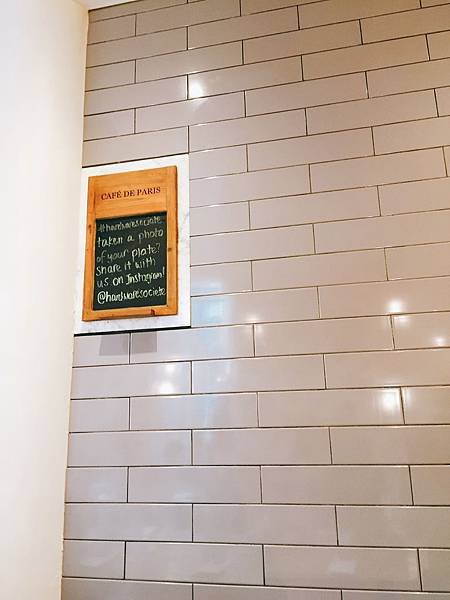 CAFÉ DE PARIS
#hardwaresociete
taken a photo
of your plate?
Share it with
us on Instagram!
@hardwaresociete